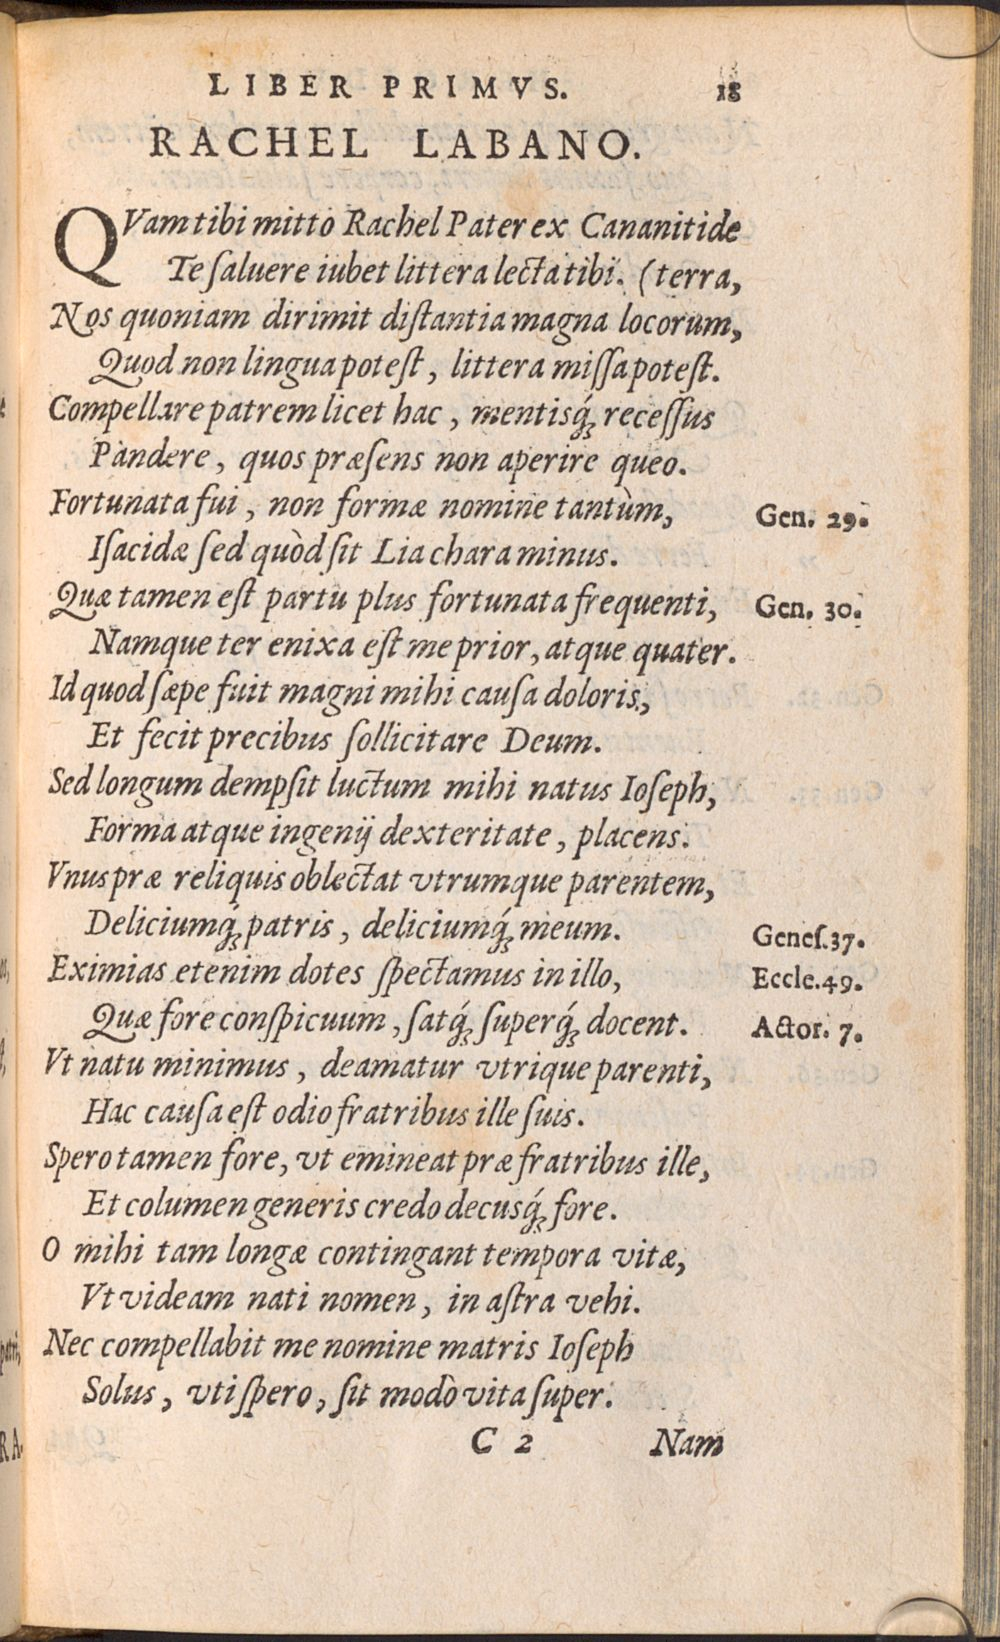 LIBER PRIMVS. 18
RACHEL LABANO.
QVam tibi mitto Rachel Pater ex Cananitide
Te ſaluere iubet littera lecta tibi. (terra,
Nos quoniam dirimit diſtantia magna locorum,
Quod non lingua poteſt, littera miſſa poteſt.
Compellare patrem licet hac, mentisq́ꝫ receſſus
Pandere, quos præſens non aperire queo.
Fortunata fui, non formæ nomine tantùm, Gen. 29.
Iſacidæ ſed quòd ſit Lia chara minus.
Quæ tamen eſt partu plus fortunata frequenti, Gen. 30.
Namque ter enixa eſt me prior, atque quater.
Id quod ſæpe fuit magni mihi cauſa doloris,
Et fecit precibus ſollicitare Deum.
Sed longum dempſit luctum mihi natus Ioſeph,
Forma atque ingenij dexteritate, placens.
Vnus præ reliquis oblectat vtrumque parentem,
Deliciumq́ꝫ patris, deliciumq́ꝫ meum. Geneſ.37.
Eximias etenim dotes ſpectamus in illo, Eccle.49.
Quæ fore conſpicuum, ſatq́ꝫ ſuperq́ꝫ docent. Actor. 7.
Vt natu minimus, deamatur vtrique parenti,
Hac cauſa eſt odio fratribus ille ſuis.
Spero tamen fore, vt emineat præ fratribus ille,
Et columen generis credo decusq́ꝫ fore.
O mihi tam longæ contingant tempora vitæ,
Vt videam nati nomen, in aſtra vehi.
Nec compellabit me nomine matris Ioſeph
Solus, vti ſpero, ſit modò vita ſuper.
C 2 Nam